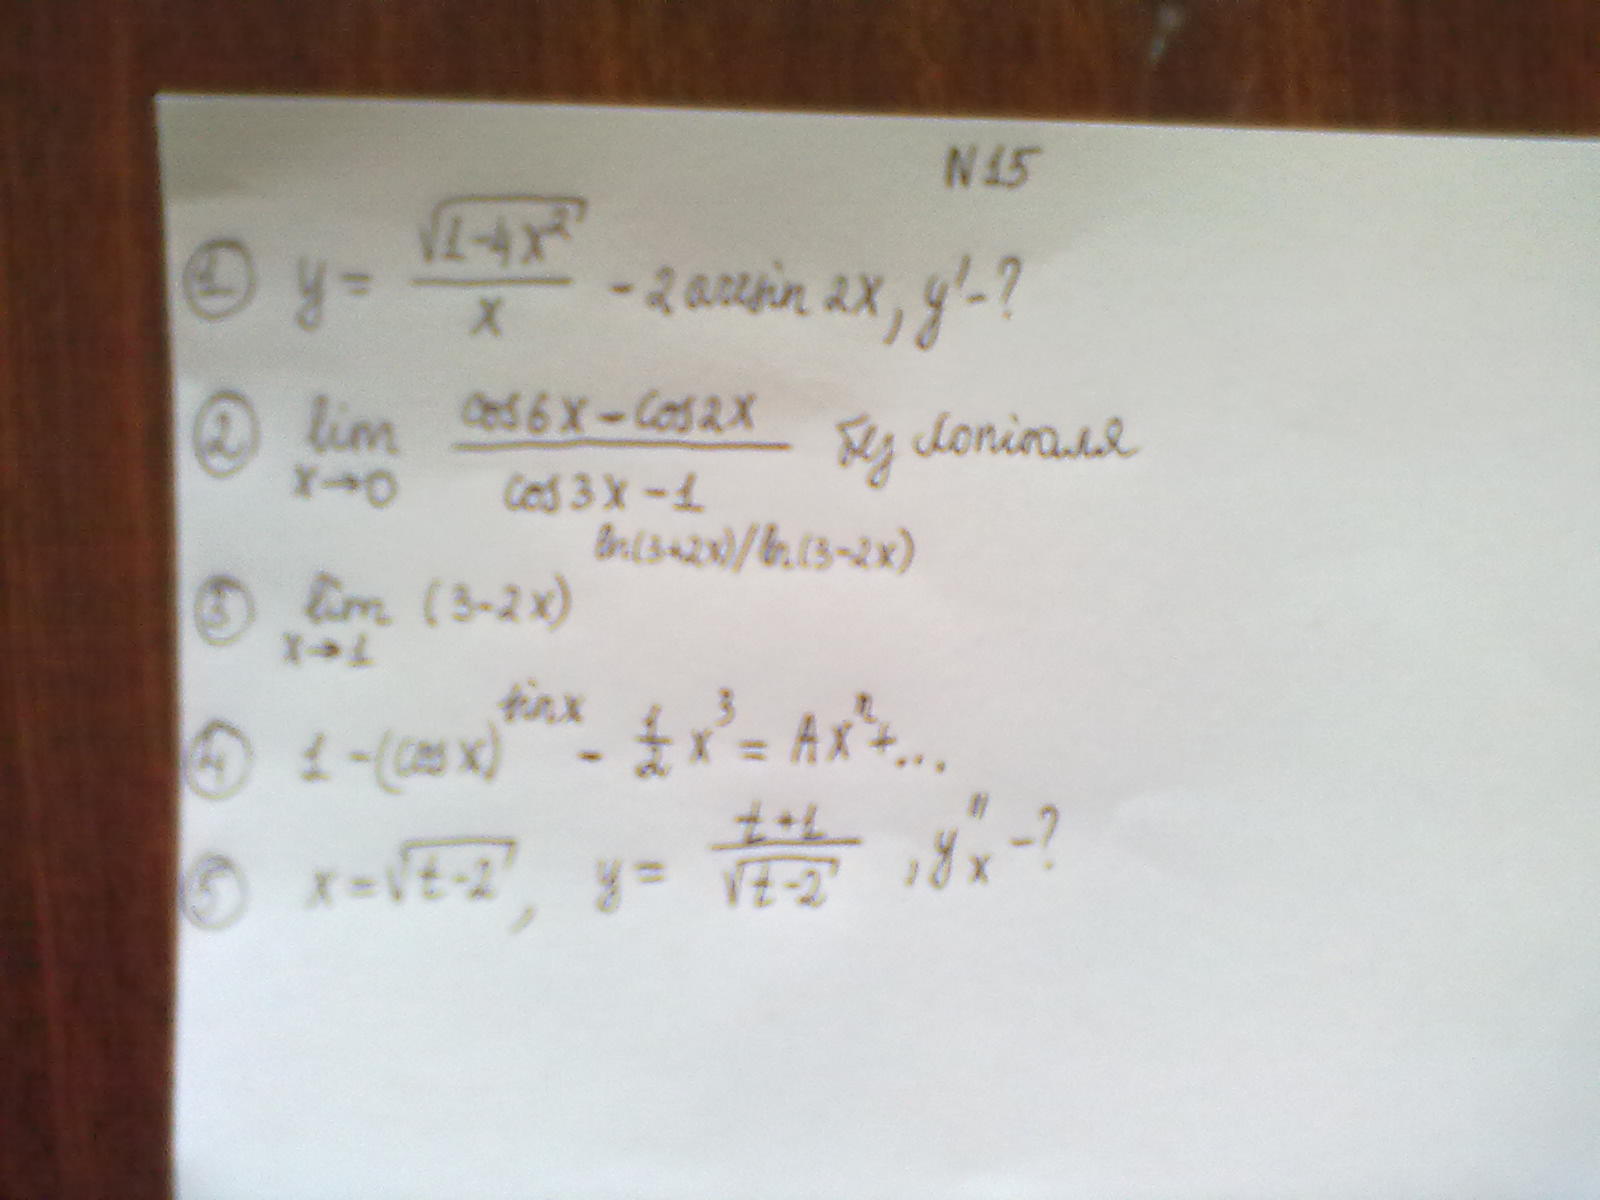 N15
① y = √(1-4x²)/x - 2 arcsin 2x, y' - ?
② lim x→0 (cos6x - cos2x)/(cos3x - 1) без Лопіталя
③ lim x→1 (3-2x)^(ln(3+2x)/ln(3-2x))
④ 1 - (cos x)^(sin x) - 1/2 x³ = Axⁿ + ...
⑤ x = √(t-2), y = (t+1)/√(t-2), y''ₓ - ?